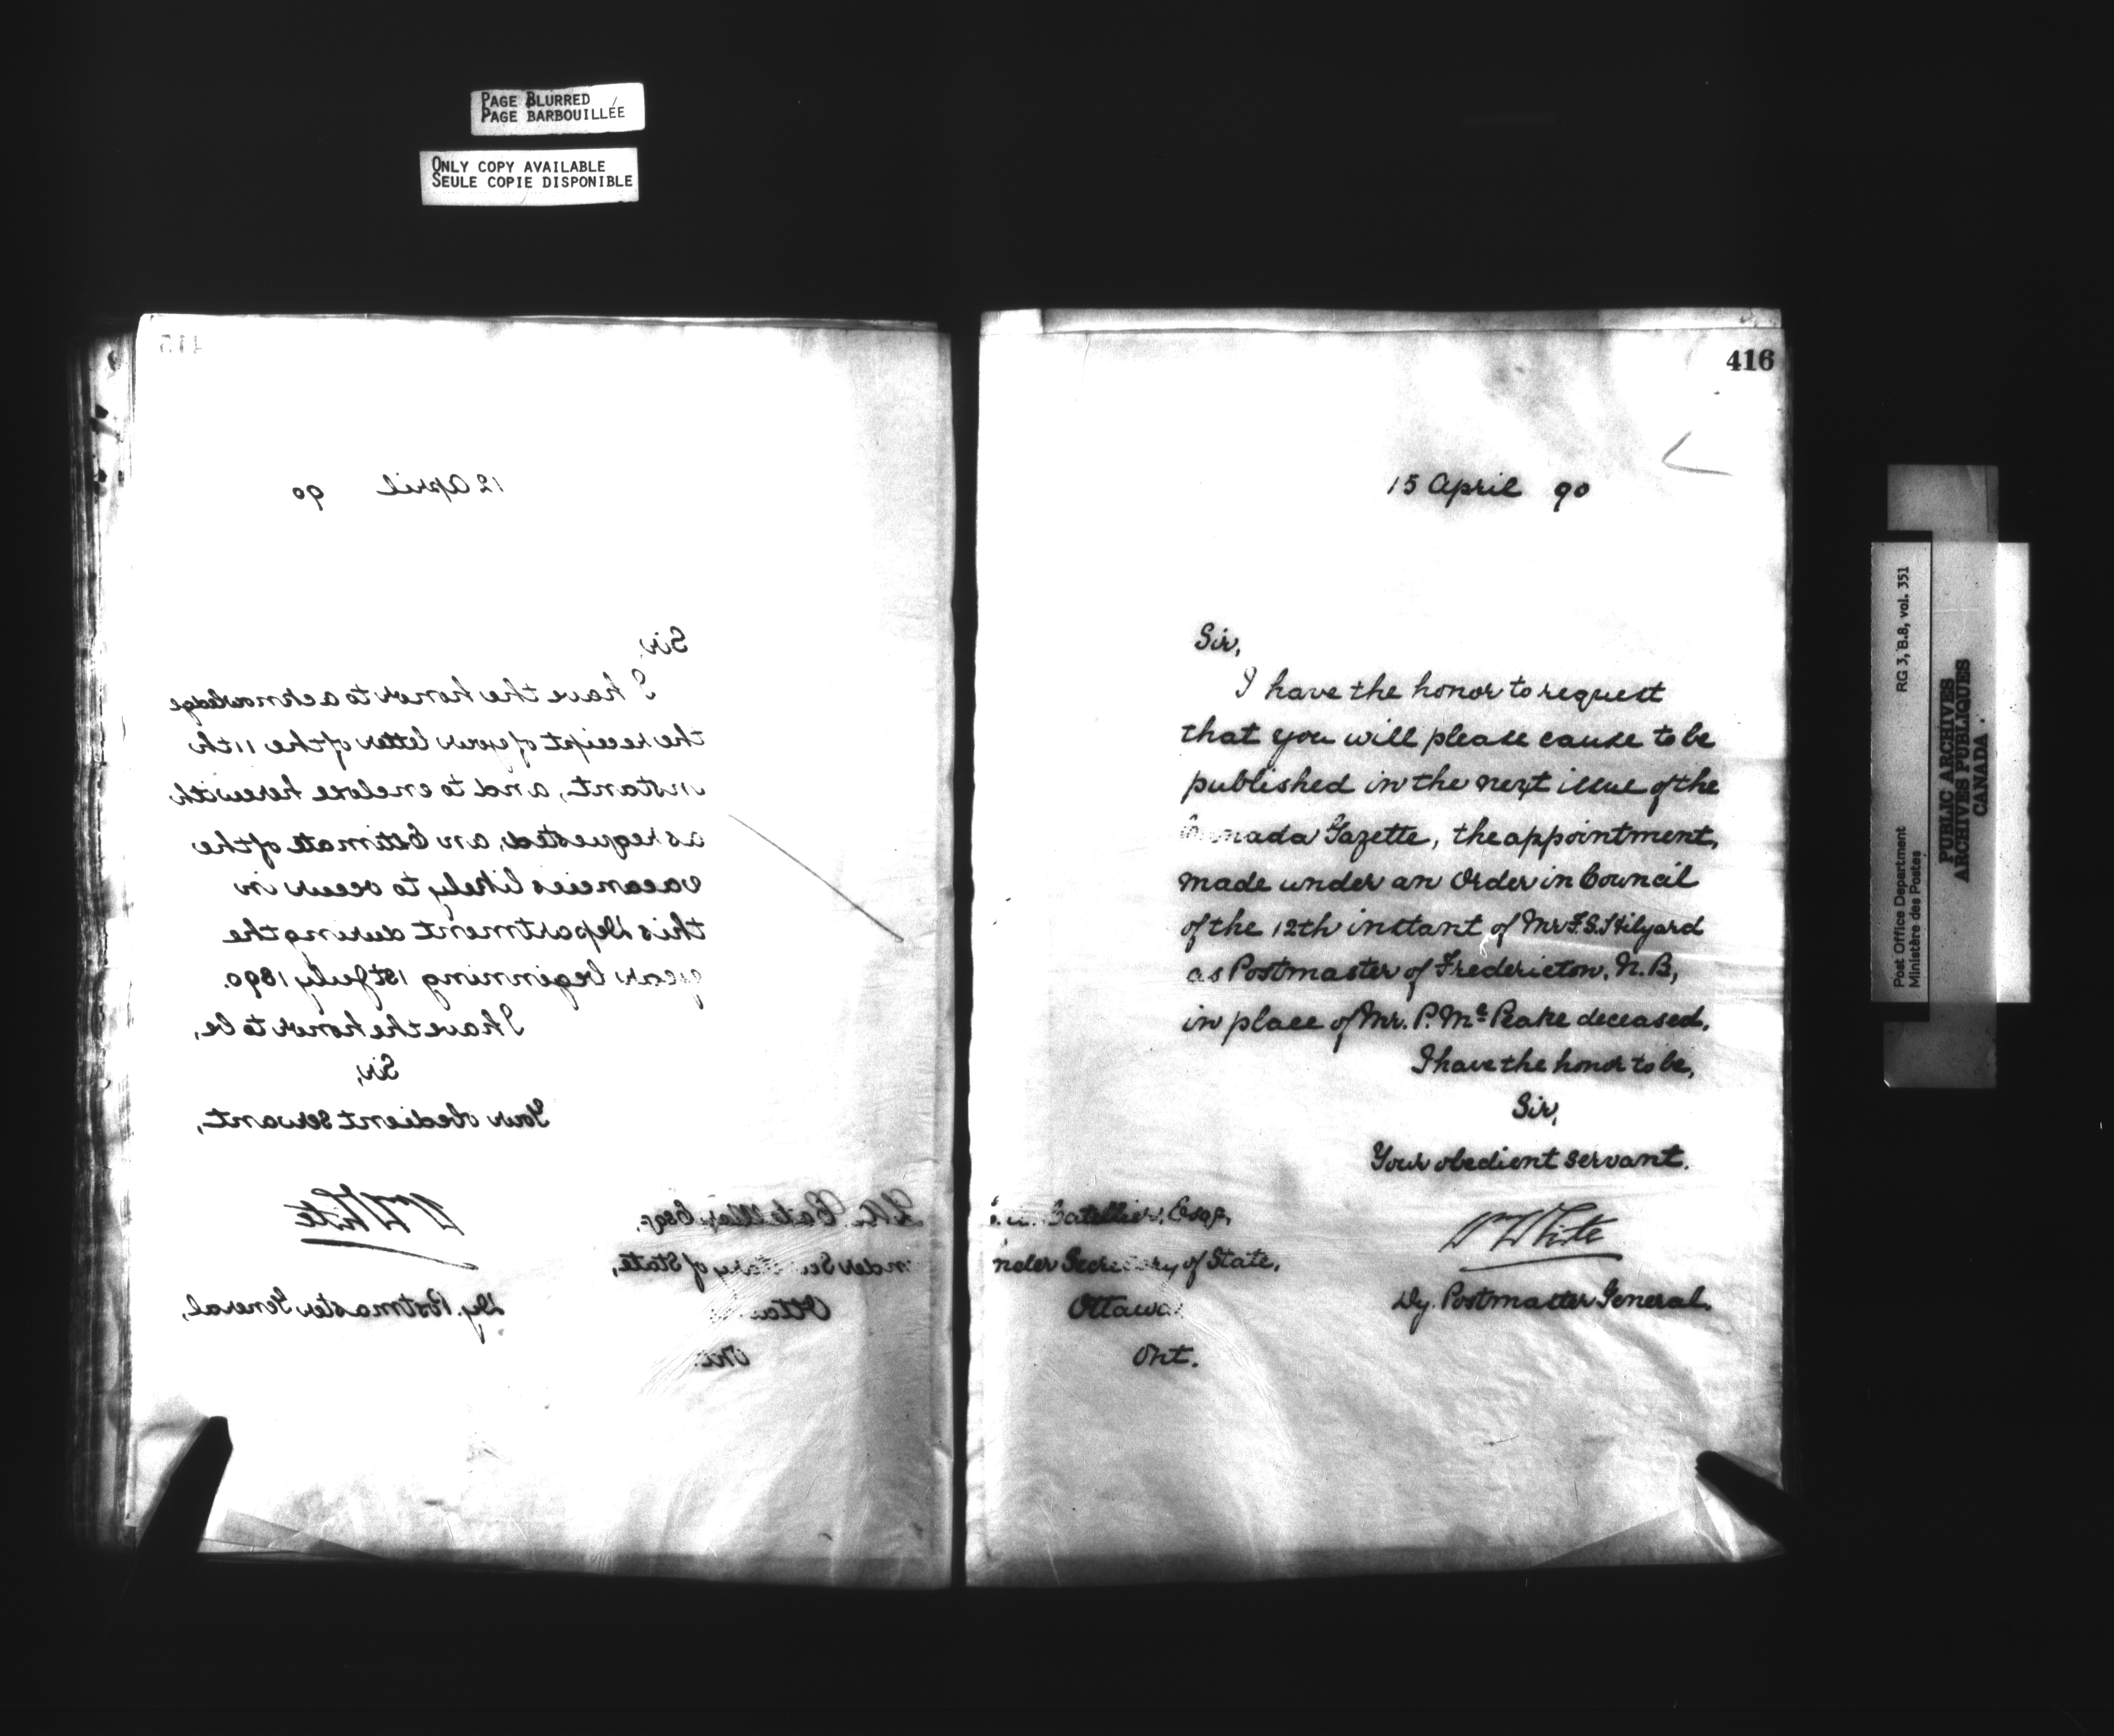 PAGE BLURRED
PAGE BARBOUILLÉE
ONLY COPY AVAILABLE
SEULE COPIE DISPONIBLE
415
12 April 90
Sir,
I have the honor to acknowledge
the receipt of your letter of the 11th
instant, and to enclose herewith
as requested, an Estimate of the
vacancies likely to occur in
this Department during the
year beginning 1st July 1890.
I have the honor to be,
Sir,
Your obedient servant,
Wm White
Dy. Postmaster General,
Catellier, Esqr,
Under Secretary of State,
Ottawa
Ont.
416
15 April 90
Sir,
I have the honor to request
that you will please cause to be
published in the next issue of the
Canada Gazette, the appointment,
made under an Order in Council
of the 12th instant of Mr F. S. Hilyard
as Postmaster of Fredericton, N. B,
in place of Mr. P. Mc Peake deceased.
I have the honor to be,
Sir,
Your obedient servant.
Wm White
Dy. Postmaster General.
Catellier, Esqr,
Under Secretary of State,
Ottawa
Ont.
Post Office Department RG 3, B.8, vol. 351
Ministère des Postes
PUBLIC ARCHIVES
ARCHIVES PUBLIQUES
CANADA